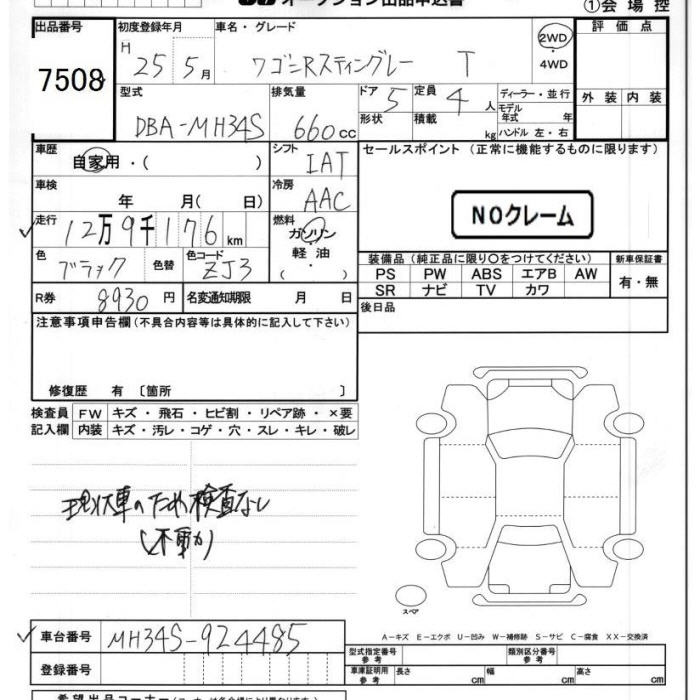 オークション出品申込書
①会場控
出品番号
7508
初度登録年月
H 25 5月
車名・グレード
ワゴンRスティングレー T
2WD
・
4WD
評価点
外装 内装
型式
DBA-MH34S
排気量
660cc
ドア 5
形状
定員 4人
積載 kg
ディーラー・並行
モデル年式 年
ハンドル 左・右
車歴
自家用・( )
シフト
IAT
セールスポイント (正常に機能するものに限ります)
NOクレーム
車検
年 月( 日)
冷房
AAC
走行
12万9千176km
燃料
ガソリン
軽油
( ・ )
色
ブラック
色替
色コード
ZJ3
装備品(純正品に限り○をつけてください)
新車保証書
PS PW ABS エアB AW
有・無
SR ナビ TV カワ
R券
8930円
名変通知期限 月 日
後日品
注意事項申告欄(不具合内容等は具体的に記入して下さい)
修復歴 有 〔箇所 〕
検査員
記入欄
FW キズ・飛石・ヒビ割・リペア跡・×要
内装 キズ・汚レ・コゲ・穴・スレ・キレ・破レ
現状車のため検査なし
(不動)
スペア
A-キズ E-エクボ U-凹み W-補修跡 S-サビ C-腐食 XX-交換済
車台番号
MH34S-924485
登録番号
型式指定番号
参考
類別区分番号
参考
車庫証明用
参考
長さ cm
幅 cm
高さ cm
希望出品コーナー